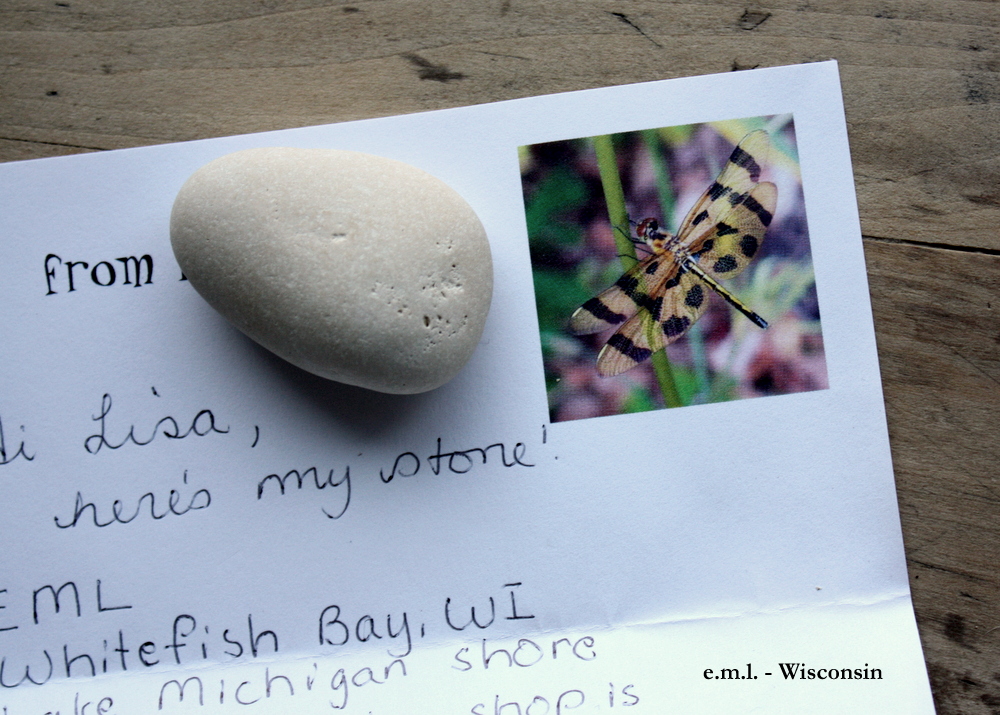 from
Hi Lisa,
here's my stone!
EML
Whitefish Bay, WI
Lake Michigan shore
shop is
e.m.l. - Wisconsin